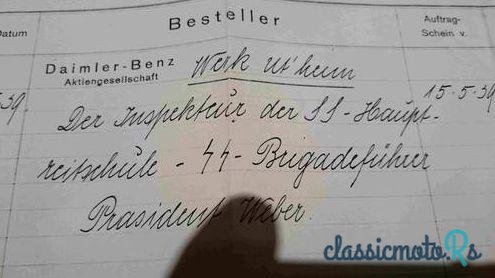 Datum
Besteller
Auftrag-
Schein v.
Daimler-Benz
Aktiengesellschaft
Werk Ut'heim
.39.
15.5.39
Der Inspekteur der SS-Haupt-
reitschule - SS-Brigadeführer
Präsident Weber.
classicmotoRs